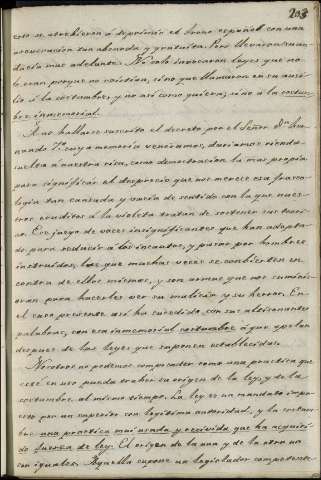 203
eso se atrebieron á deprimir el trono español con una
acusacion tan absurda y gratuita. Pero llevaron su au-
dacia mas adelante. No solo invocaron leyes que no
lo eran porque no existian, sino que llamaron en su ausi-
lio á la costumbre, y no asi como quiera, sino á la costum-
bre inmemorial.
A no hallarse suscrito el decreto por el Señor Dn. Fer-
nando 7º cuya memoria veneramos, dariamos rienda
suelta á nuestra risa, como demostracion la mas propia
para significar el desprecio que nos merece esa frase-
logia tan cansada y vacia de sentido con la que nues-
tros eruditos á la violeta tratan de sostener sus teori-
as. Es juego de voces insignificantes que han adopta-
do para seducir á los incautos, y pasar por hombres
instruidos, que muchas veces se conbierten en
contra de ellos mismos, y son armas que nos suminis-
tran para hacerles ver su malicia y su herror. En
el caso presente asi ha sucedido con sus altisonantes
palabras, con esa inmemorial costumbre á que apelan
despues de las leyes que suponen establecidas.
Nosotros no podemos comprender como una practica que
esté en uso pueda traher su origen de la ley, y de la
costumbre al mismo tiempo. La ley es un mandato impu-
esto por un superior con legitima autoridad, y la costum-
bre una practica mui usada y recivida que ha adquirido
fuerza de ley. El origen de la una y de la otra no
son iguales. Aquella supone un legislador competente